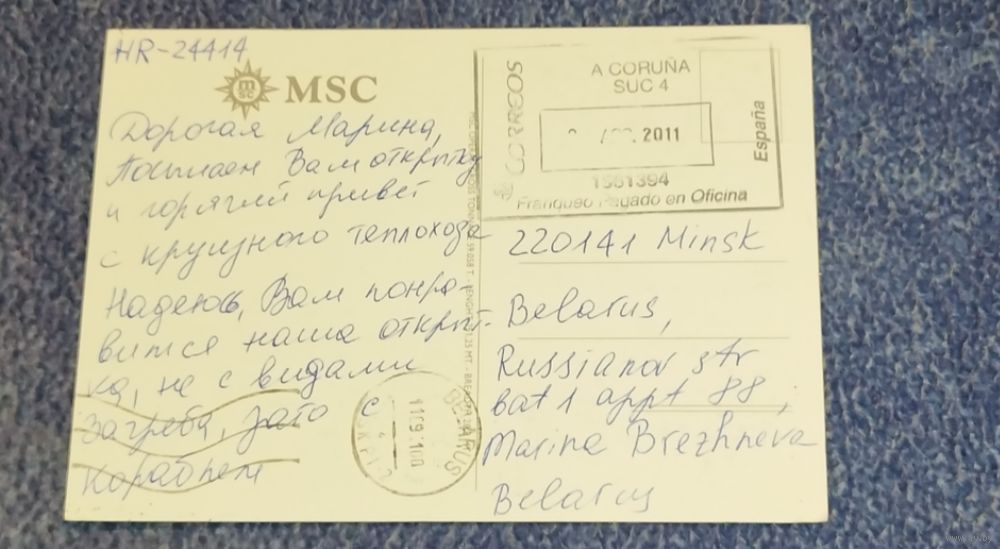 HR-24414
MSC
Дорогая Марина,
Посылаем Вам открытку
и горячий привет
с круизного теплохода
Надеюсь, Вам понра-
вится наша открыт-
ка, не с видами
Загреба, зато с
кораблем
CORREOS
A CORUÑA
SUC 4
2011
1561394
Franqueo Pagado en Oficina
España
220141 Minsk
Belarus,
Russianov str
bat 1 appt 88,
Marina Brezhneva
Belarus
BELARUS